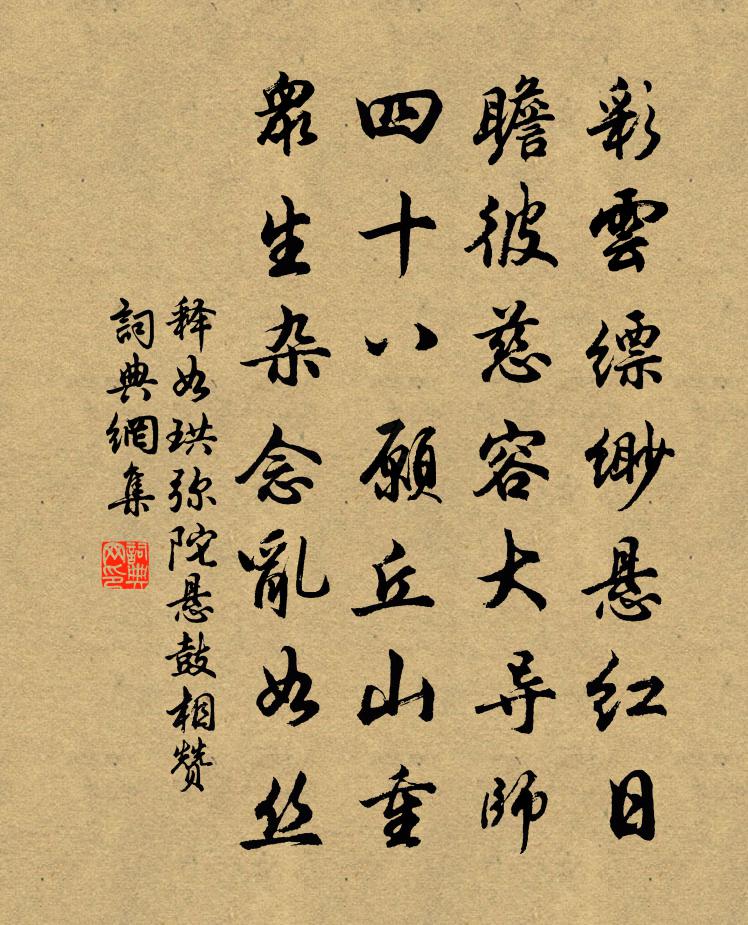 彩雲缥缈悬红日
瞻彼慈容大导師
四十八願丘山重
眾生杂念亂如丝
释如珙弥陀悬鼓相赞
詞典網集
詞典網印